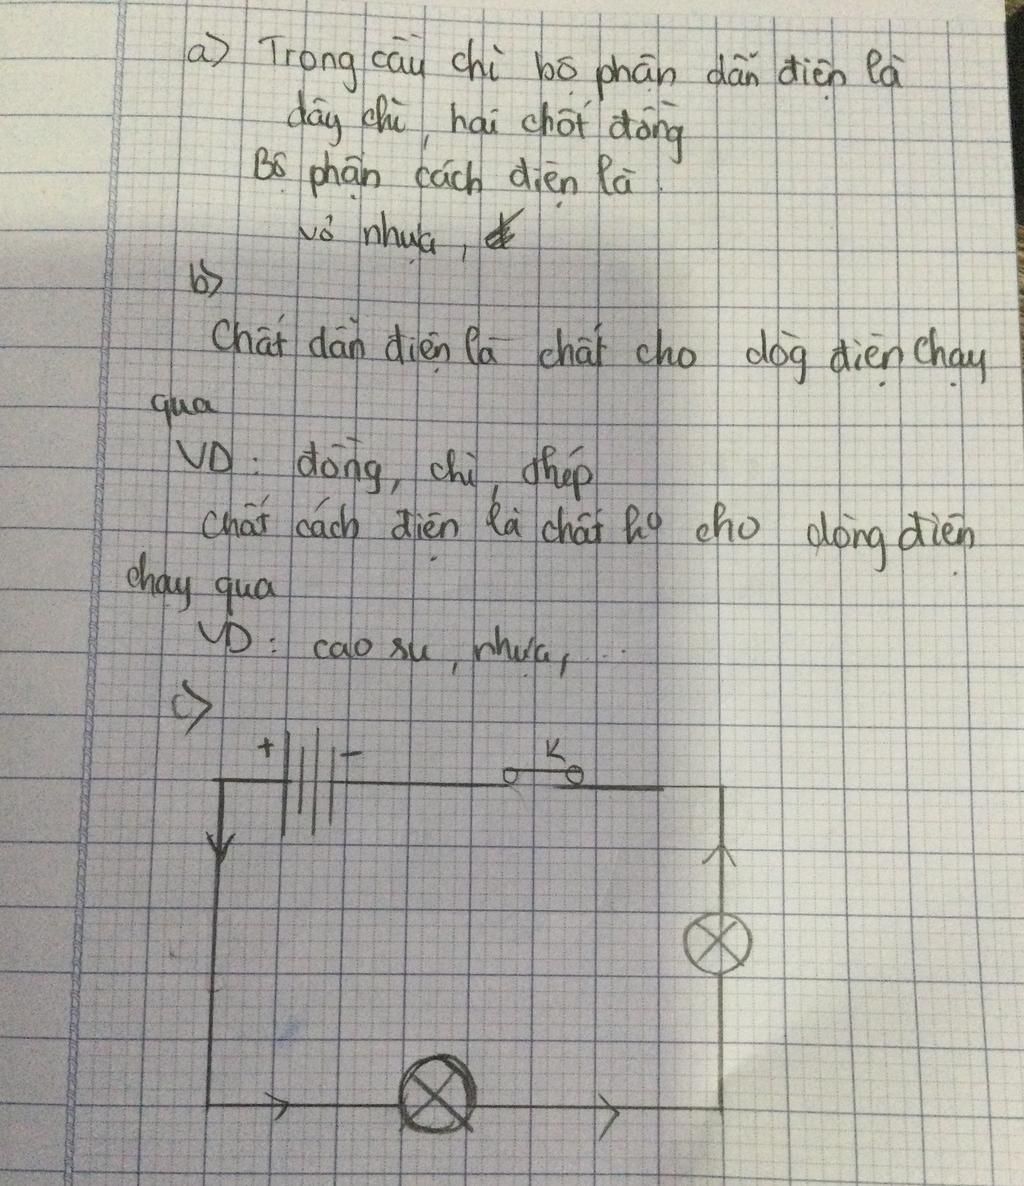 a) Trong cầu chì bộ phận dẫn điện là
dây chì, hai chốt đồng
Bộ phận cách điện là
vỏ nhựa,
b)
Chất dẫn điện là chất cho dòg điện chạy
qua
VD: đồng, chì, thép
Chất cách điện là chất ko cho dòng điện
chạy qua
VD: cao su, nhựa, ...
c)
+ - K